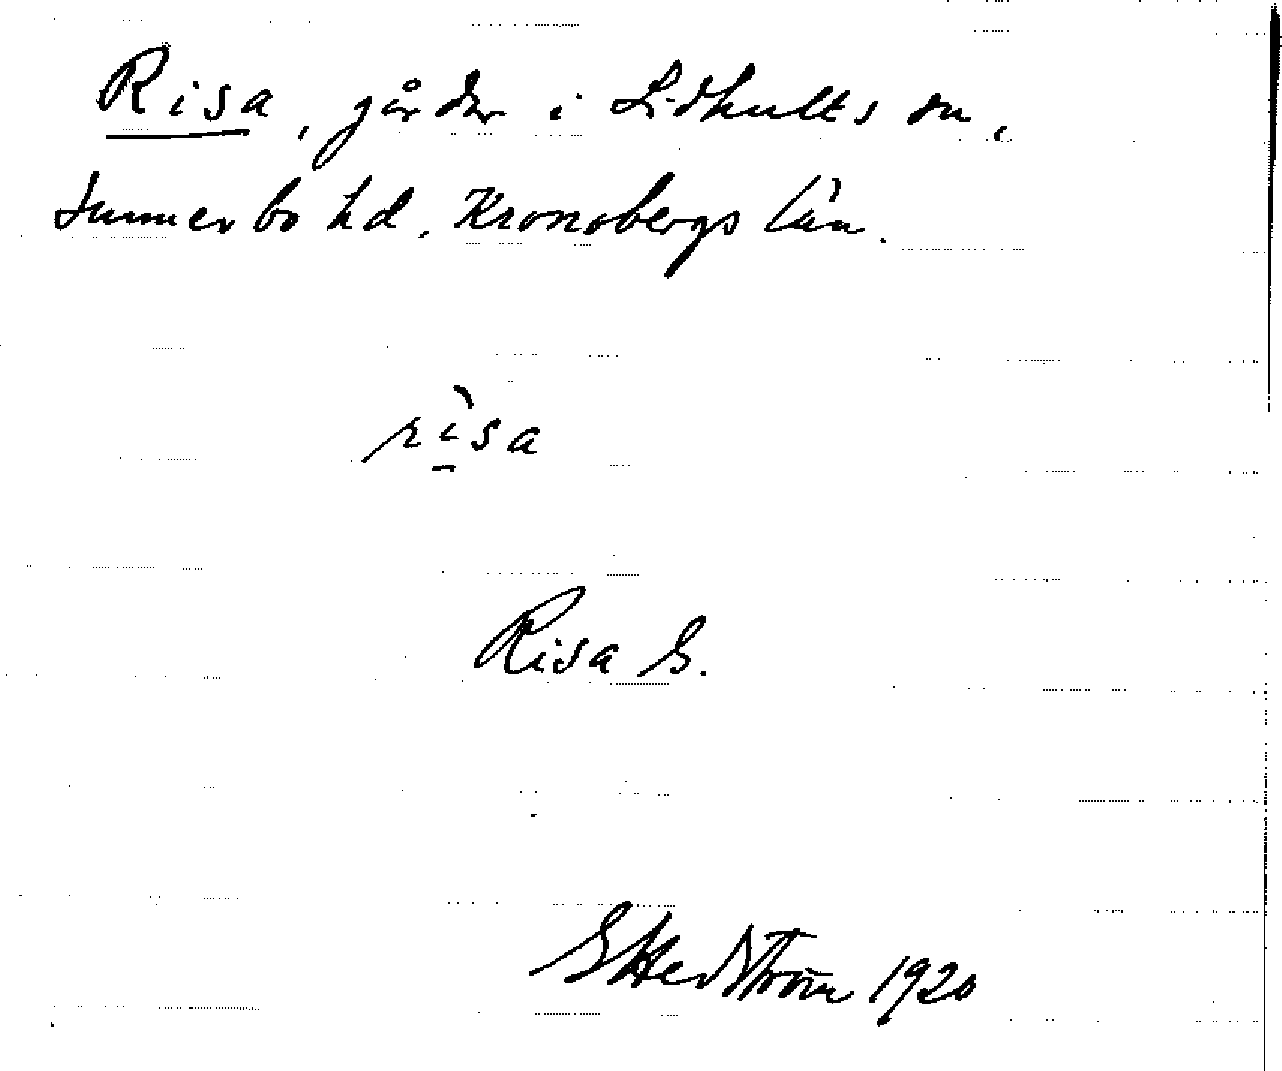 Risa, gårdar i Lidhults sn,
Sunnerbo hd, Kronobergs län.
rìsa
Risa G.
G Hedström 1920